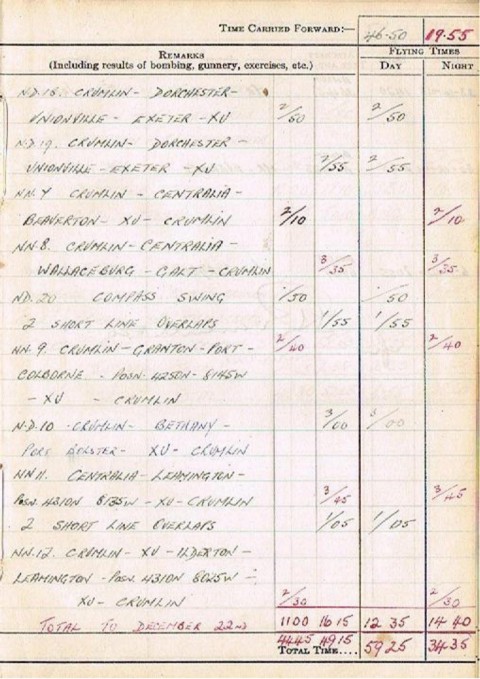 TIME CARRIED FORWARD:— 46-50 19-55
REMARKS FLYING TIMES
(Including results of bombing, gunnery, exercises, etc.) DAY NIGHT
ND.18. CRUMLIN - DORCHESTER-
UNIONVILLE - EXETER - XU 2/50 2/50
ND.19. CRUMLIN - DORCHESTER -
UNIONVILLE - EXETER - XU 2/55 2/55
NN.7 CRUMLIN - CENTRALIA -
BEAVERTON - XU - CRUMLIN 2/10 2/10
NN.8. CRUMLIN - CENTRALIA -
WALLACEBURG - GALT - CRUMLIN 3/35 3/35
ND.20 COMPASS SWING /50 /50
2 SHORT LINE OVERLAPS 1/55 1/55
NN.9. CRUMLIN - GRANTON - PORT - 2/40 2/40
COLBORNE - POSN. 4250N - 8145W
- XU - CRUMLIN
N.D.10 CRUMLIN - BETHANY - 3/00 3/00
PORT BOLSTER - XU - CRUMLIN
NN.11. CENTRALIA - LEAMINGTON -
POSN. 4310N 8135W - XU - CRUMLIN 3/45 3/45
2 SHORT LINE OVERLAPS 1/05 1/05
NN.12. CRUMLIN - XU - ILDERTON -
LEAMINGTON - POSN. 4310N 8025W -
XU - CRUMLIN 2/30 2/30
TOTAL TO DECEMBER 22ND 1100 16 15 12 35 14 40
TOTAL TIME.... 4445 4915 5925 3435